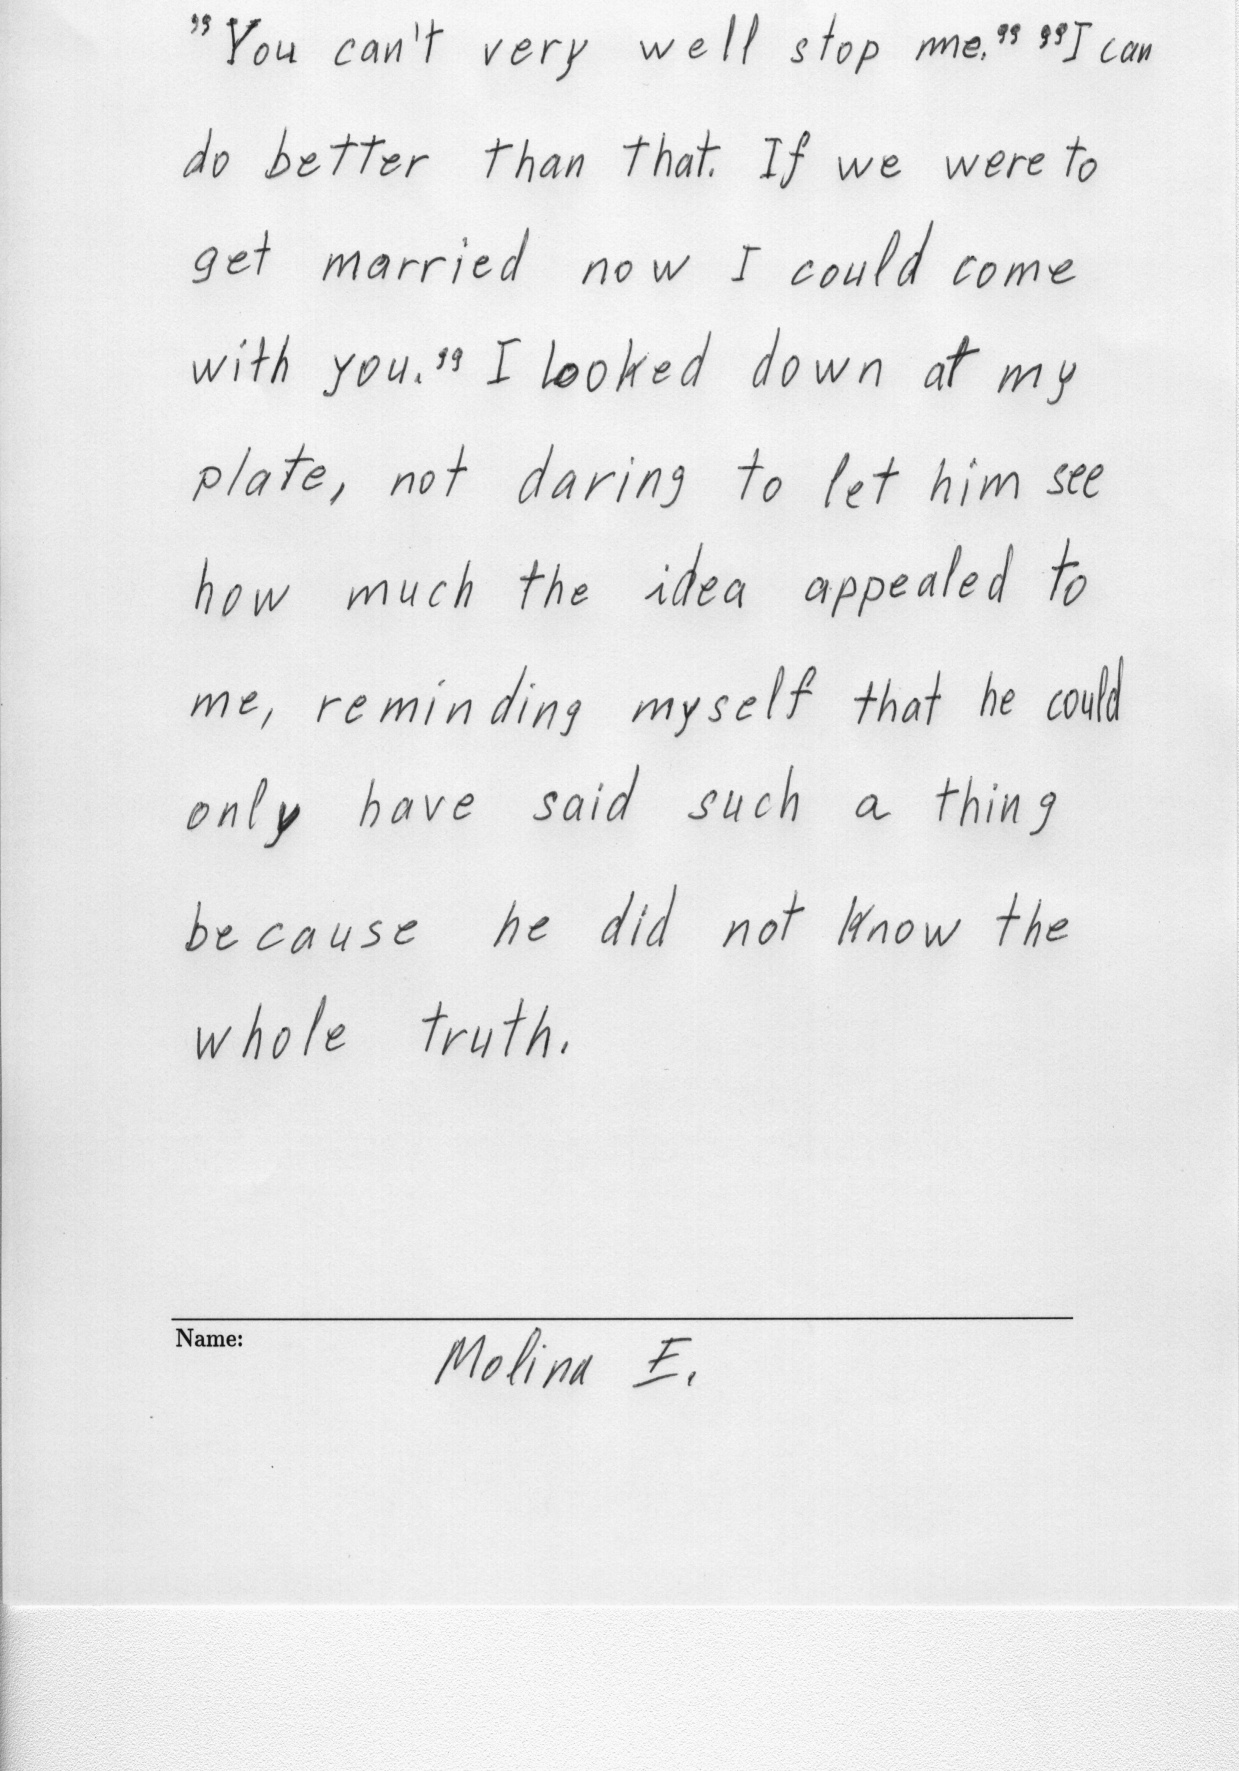 "You can't very well stop me." "I can
do better than that. If we were to
get married now I could come
with you." I looked down at my
plate, not daring to let him see
how much the idea appealed to
me, reminding myself that he could
only have said such a thing
because he did not know the
whole truth.
Name:
Molina E.